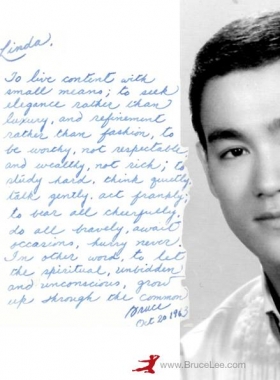 Linda,
To live content with
small means; to seek
elegance rather than
luxury, and refinement
rather than fashion, to
be worthy, not respectable,
and wealthy, not rich; to
study hard, think quietly,
talk gently, act frankly;
to bear all cheerfully,
do all bravely, await
occasions, hurry never.
In other word, to let
the spiritual, unbidden
and unconscious, grow
up through the common
Bruce
Oct 20 1963
www.BruceLee.com